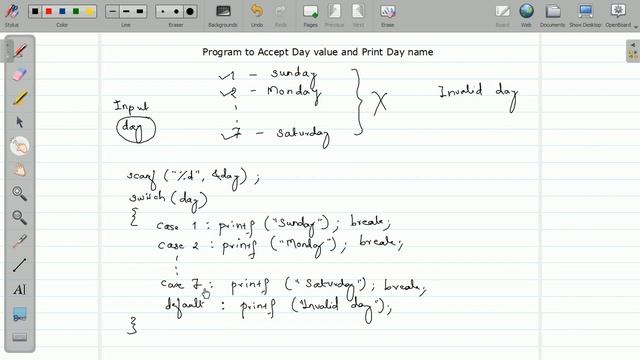 Stylus
Color
Line
Eraser
Backgrounds
Undo
Redo
Pages
Previous
Next
Erase
Board
Web
Documents
Show Desktop
OpenBoard
Program to Accept Day value and Print Day name
1 - Sunday
2 - Monday
Invalid day
Input
day
7 - Saturday
X
scanf ("%d", &day) ;
switch (day)
{ case 1 : printf ("Sunday") ; break;
case 2 : printf ("Monday") ; break;
case 7 : printf ("Saturday") ; break;
default : printf ("Invalid day");
}
AI